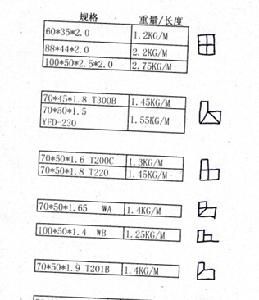 规格 重量/长度
60*35*2.0 1.2KG/M
88*44*2.0 2.2KG/M
100*50*2.5*2.0 2.75KG/M
70*45*1.8 T300B 1.45KG/M
70*50*1.5
YFD-230 1.55KG/M
70*50*1.6 T200C 1.3KG/M
70*50*1.8 T220 1.45KG/M
70*50*1.65 WA 1.4KG/M
100*50*1.4 WB 1.25KG/M
70*50*1.9 T201B 1.4KG/M